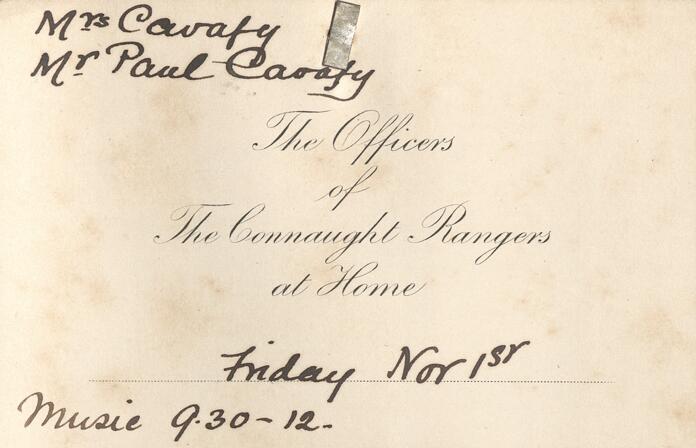 Mrs Cavafy
Mr Paul Cavafy
The Officers
of
The Connaught Rangers
at Home
Friday Nov 1st
Music 9.30-12.